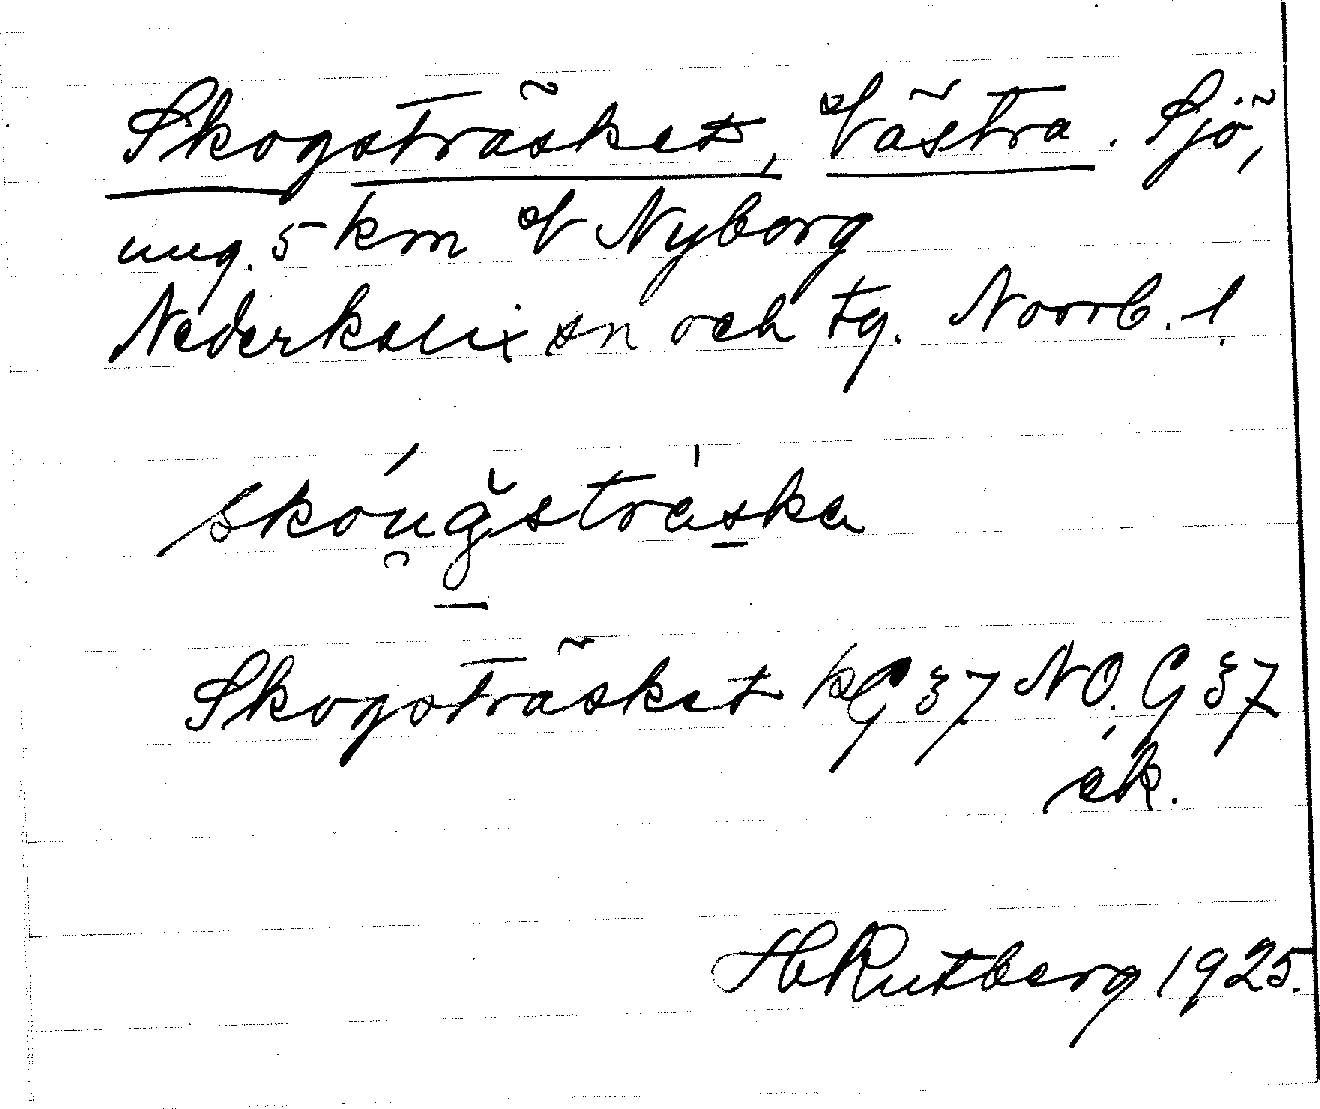 Skogsträsket, Västra. Sjö,
ung. 5 km V Nyborg
Nederkalix sn och tg. Norrb. l.
skóu̯ǧstràska
Skogsträsket kG 37 NO. G 37
ek.
H Rutberg 1925.